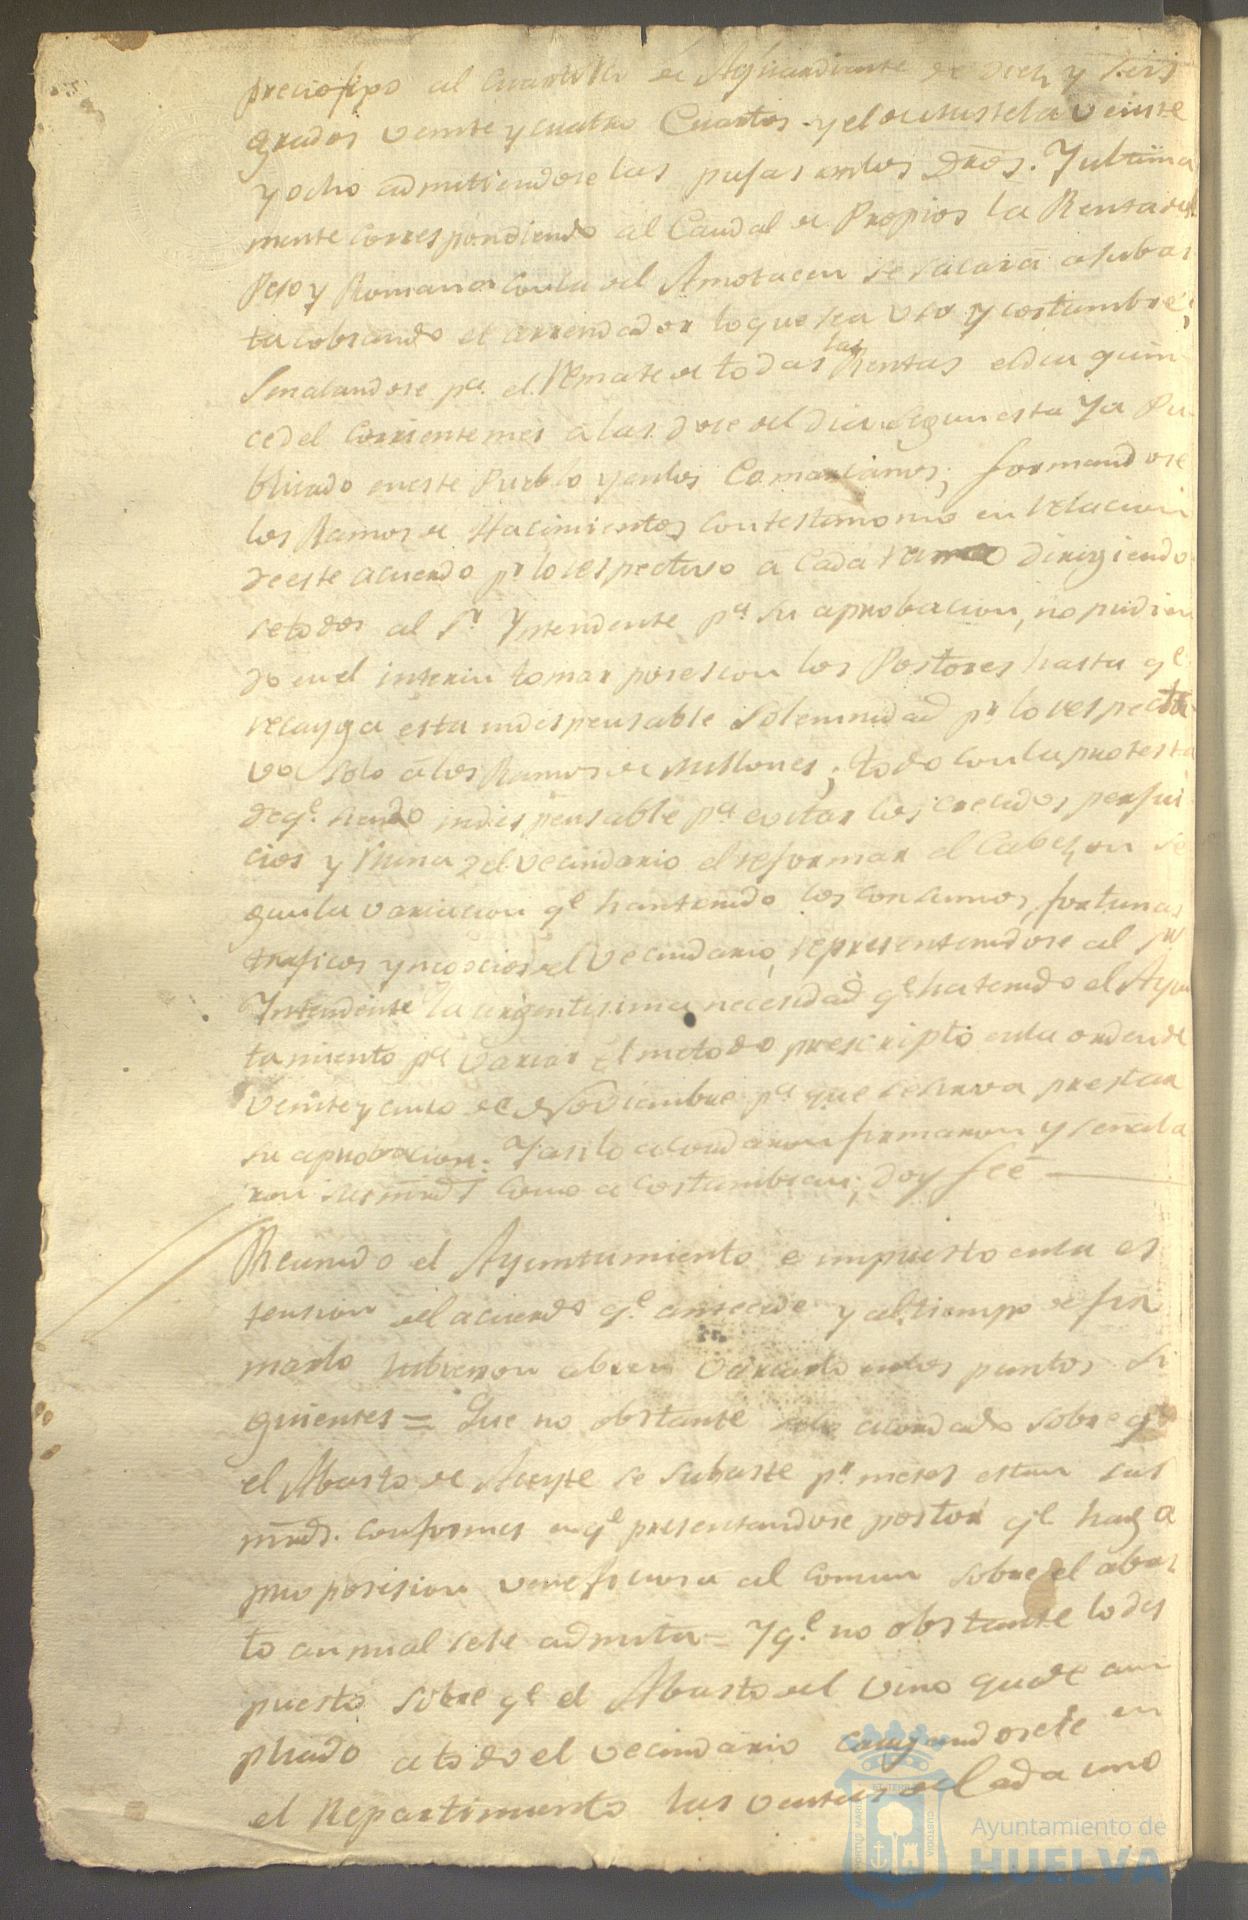 precio fixo al Cuartillo de Aguardiente de diez y seis
grados veinte y cuatro Cuartos y el de veinte
y ocho admitiendose las pujas en los Dros. Y ultima
mente correspondiendo al Caudal de Propios la Renta del
Peso y Romana con la del Amotacen se sacará a subas
ta cobrando el arrendador lo que sea uso y costumbre;
Señalandose pa. el Remate de todas las Rentas el dia quin
ce del Corriente mes a las doce del dia segun esta Ya Pu
blicado en este Pueblo y en los Comarcanos; formandose
los Ramos de Hacimientos con testimonio en relacion
de este acuerdo pr. lo respectivo a cada ramo dirigiendo
se todos al Sr. Yntendente pa. su aprobacion, no pudien
do en el interin tomar posesion los Postores hasta qe.
recayga esta indispensable Solemnidad pr. lo respecti
vo solo a los Ramos de Millones; todo con la protesta
de qe. siendo indispensable pa. evitar los crecidos perjui
cios y ruina del vecindario el reformar el Cabezon se
gun la variacion qe. han tenido los consumos, fortunas
traficos y negocios del Vecindario, representandose al Sr.
Yntendente la urgentisima necesidad qe. ha tenido el Ayun
tamiento pa. variar el metodo prescripto en la orden de
veinte y cinco de Noviembre pa. que se sirva prestar
su aprobacion: Y asi lo acordaron firmaron y señala
ron sus mrds. como acostumbran; doy feé
Reunido el Ayuntamiento e impuesto en la es
tension del acuerdo qe. antecede y al tiempo de fir
marlo hubieron a bien variarlo en los puntos si
guientes = Que no obstante lo acordado sobre qe.
el Abasto de Aceyte se subaste pr. meses estan sus
mrds. conformes en qe. presentandose postor qe. haga
proposision veneficiosa al comun sobre el abas
to annual se le admita = Y qe. no obstante lo dis
puesto sobre qe. el Abasto del vino quede am
pliado a todo el vecindario cargandosele en
el Repartimiento las ventas de Cada uno
Ayuntamiento de
HUELVA